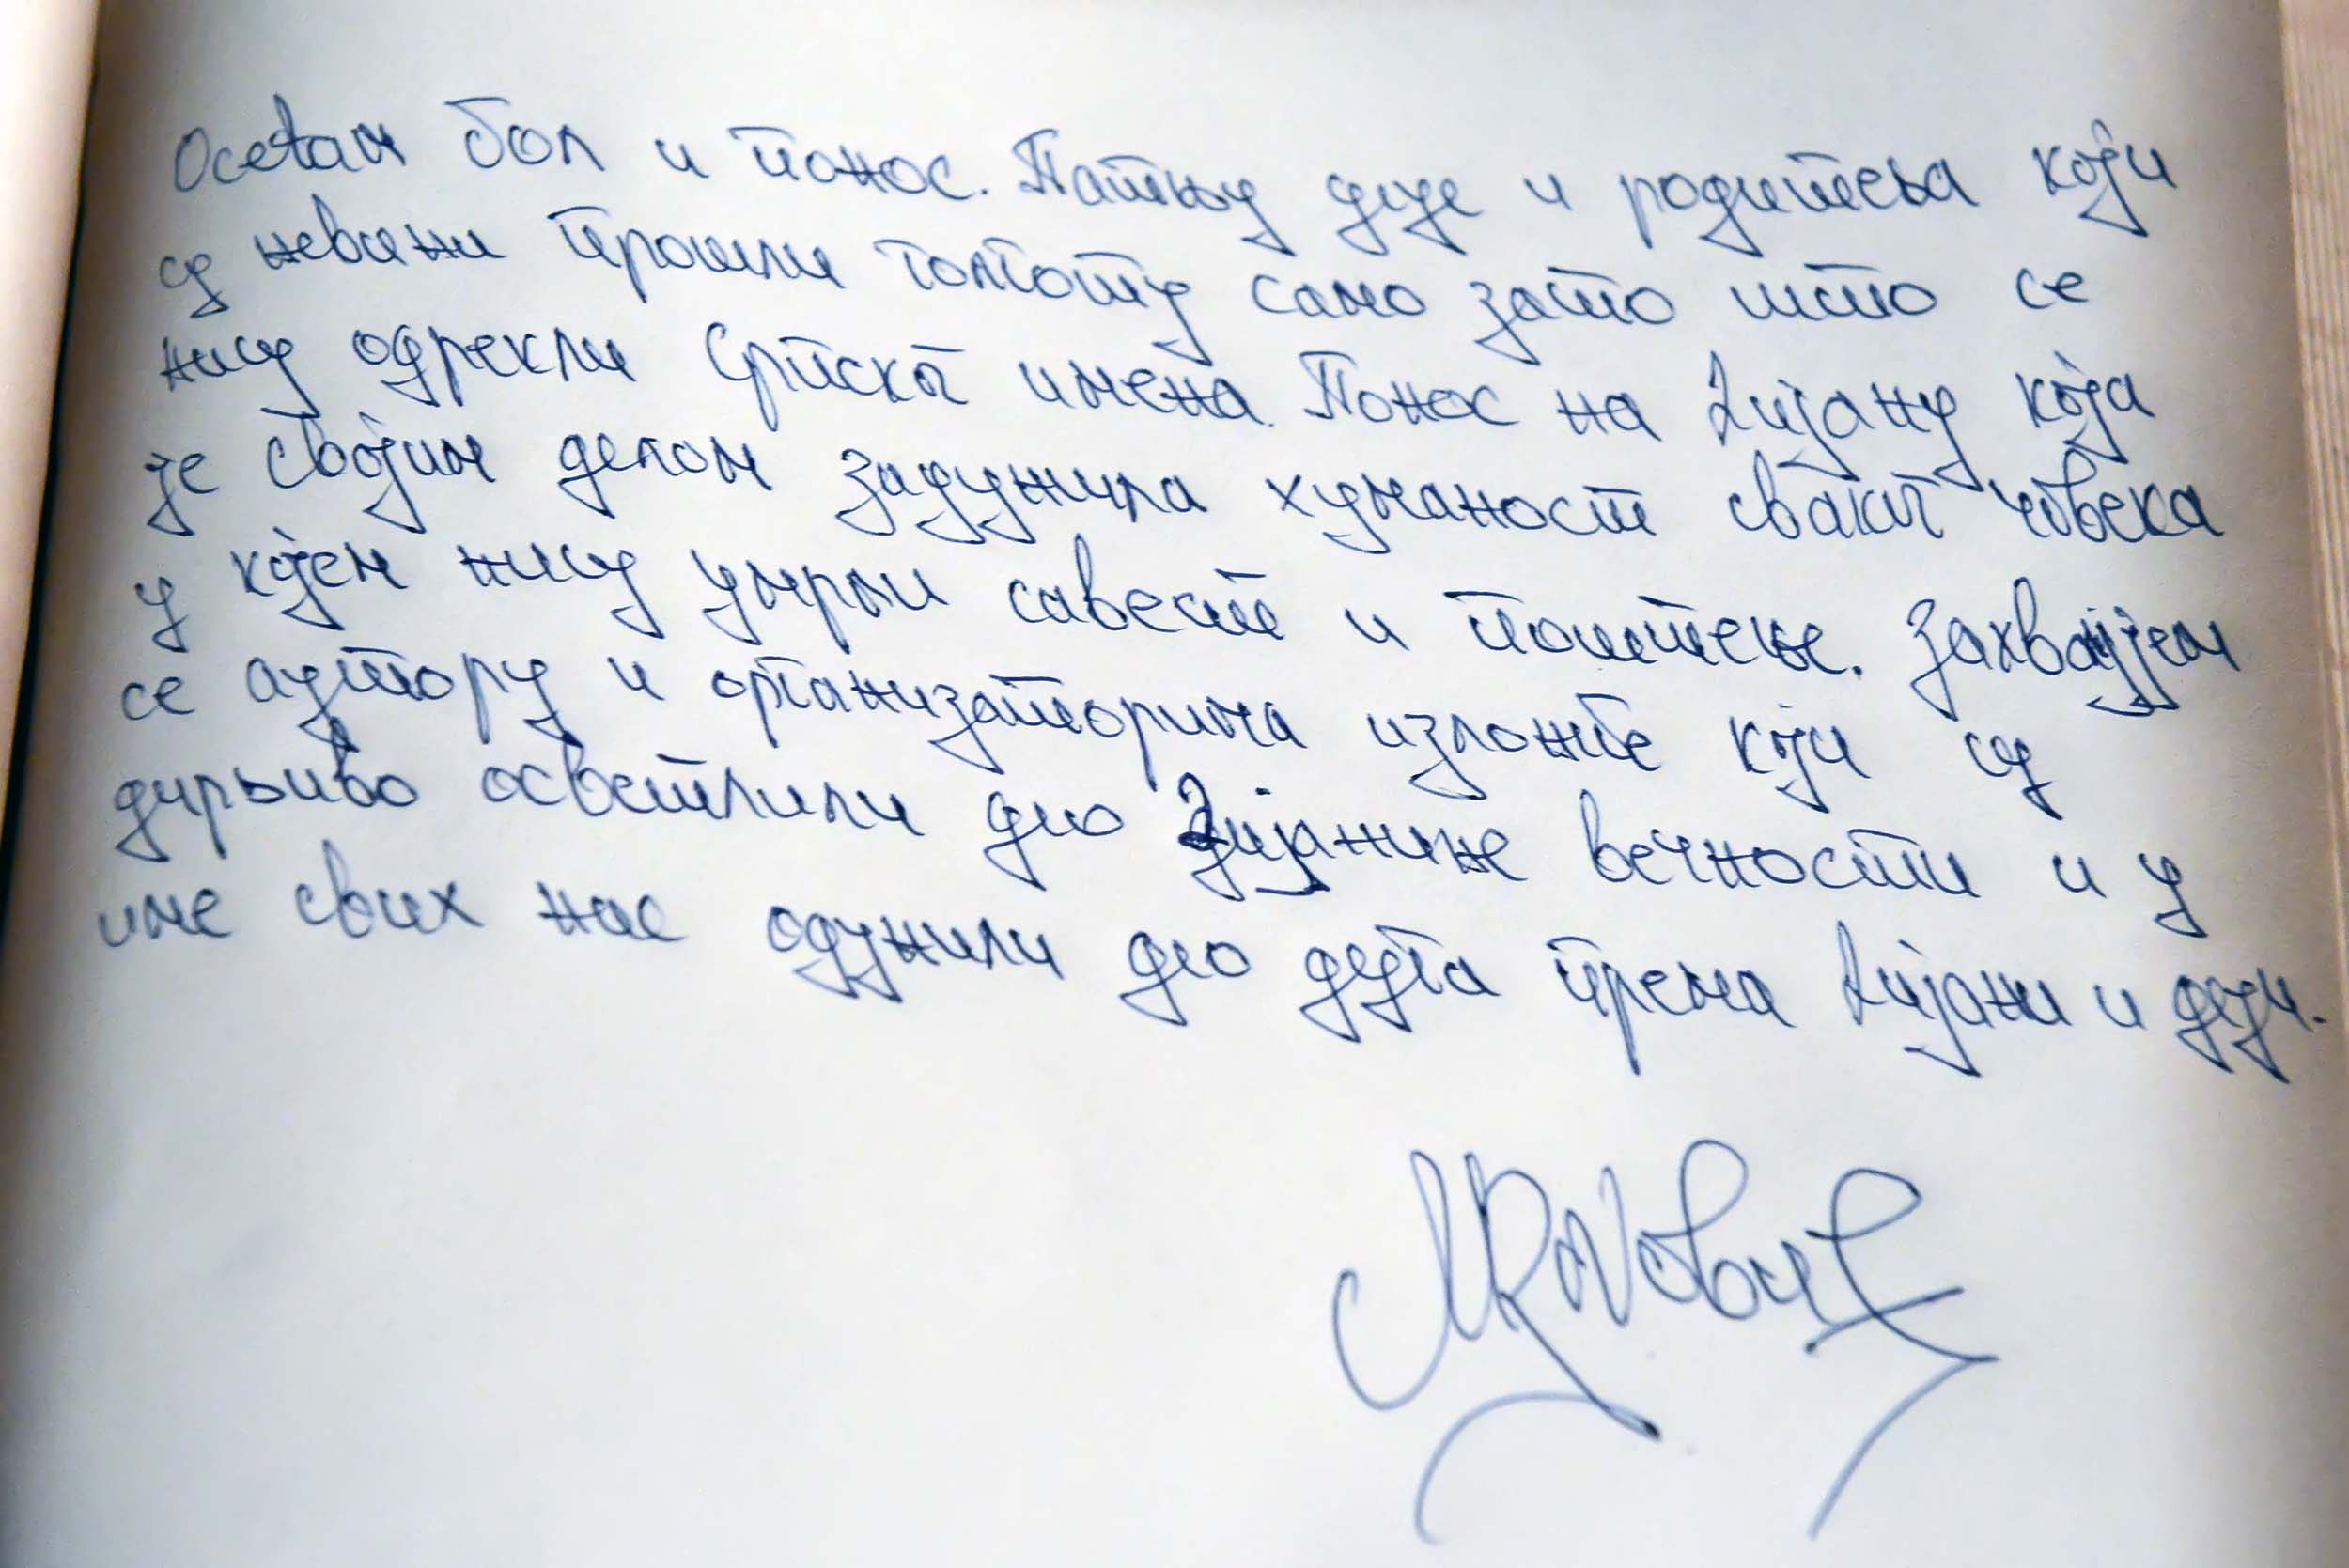 Осећам бол и понос. Патњу деце и родитеља који
су невини прошли голготу само зато што се
нису одрекли српског имена. Понос на Дијану која
је својим делом задужила хуманост сваког човека
у којем нису умрли савест и поштење. Захваљујем
се аутору и организаторима изложбе који су
дирљиво осветлили део Дијанине вечности и у
име свих нас одужили део дуга према Дијани и деци.